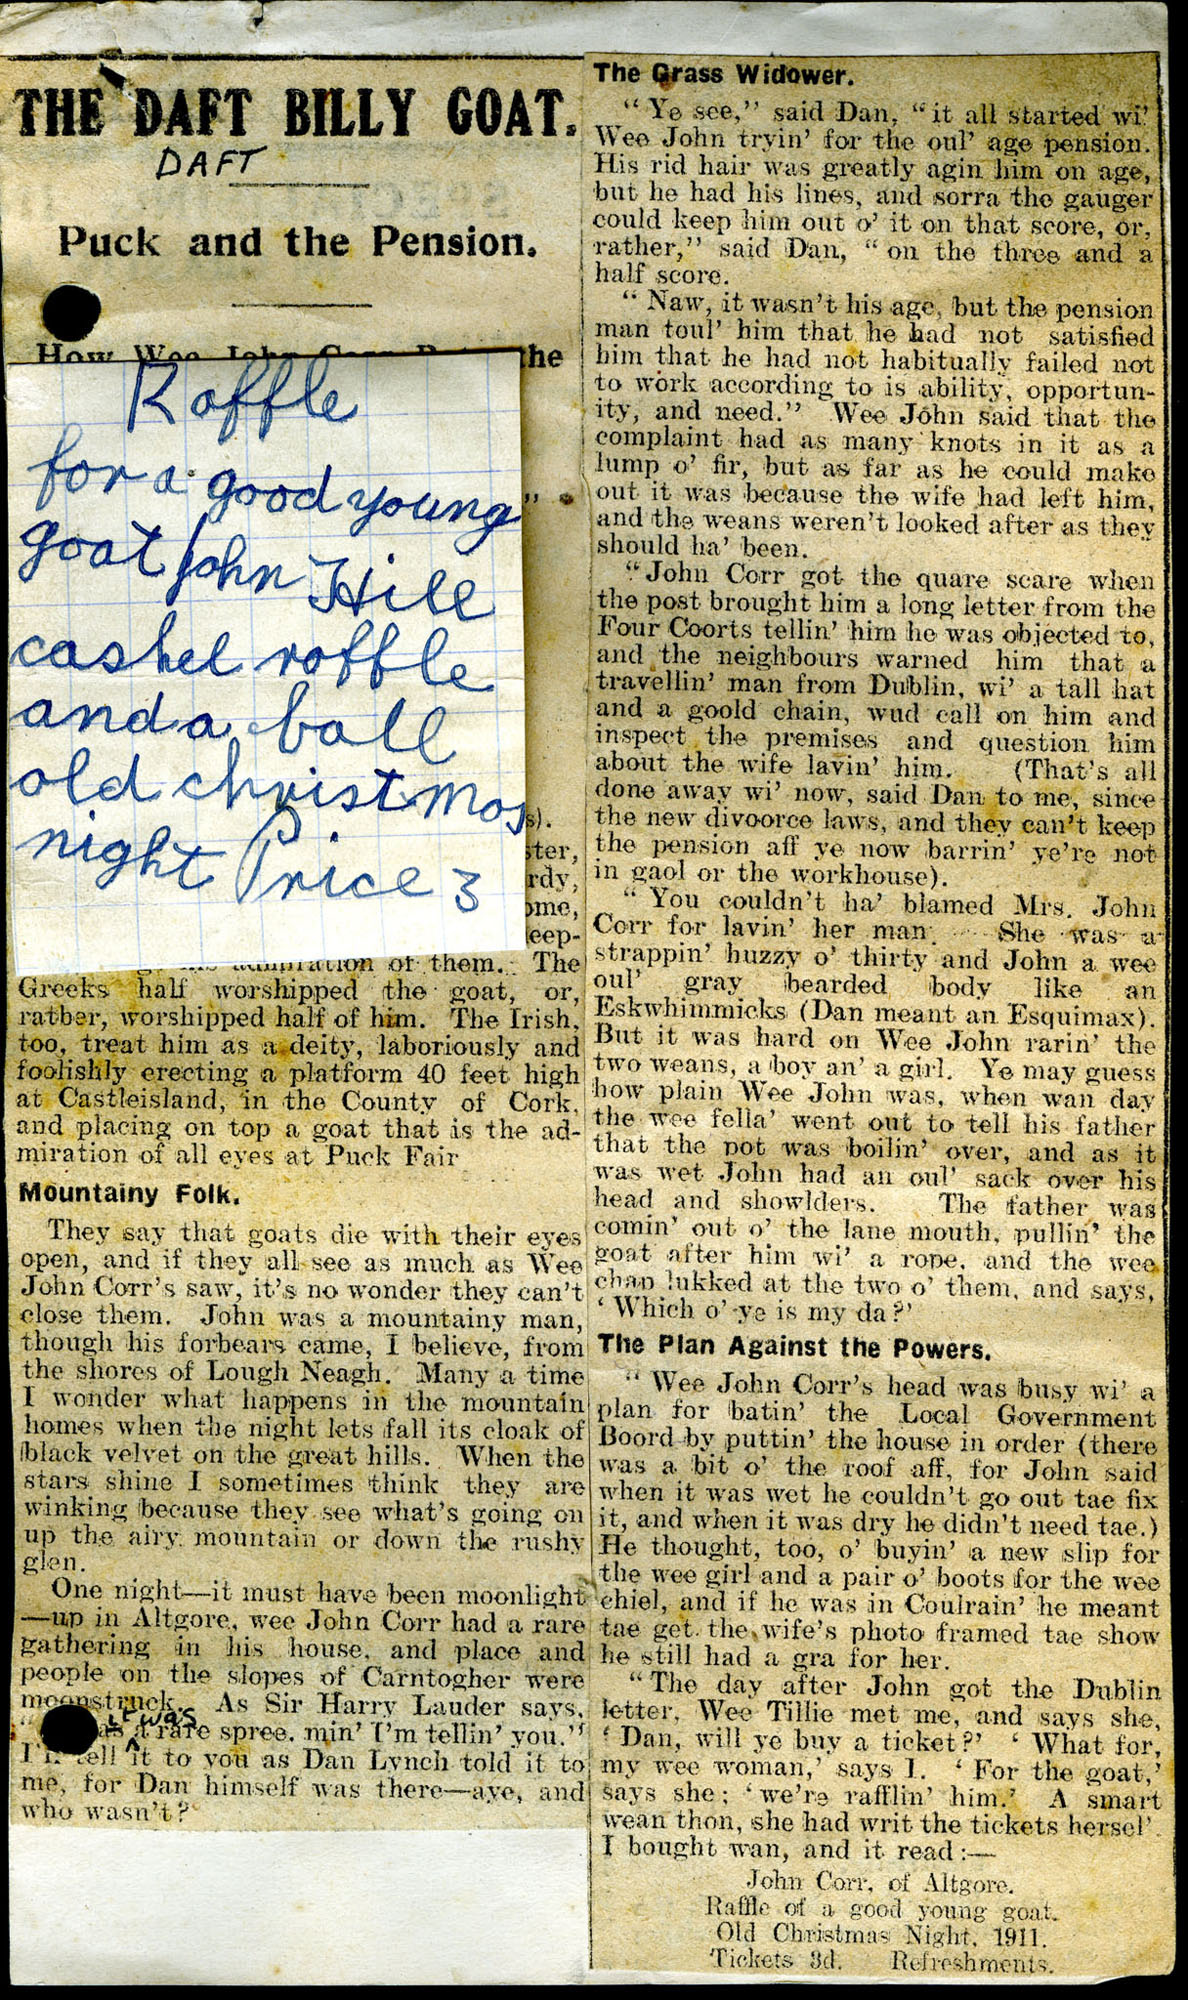 THE DAFT BILLY GOAT.
DAFT
Puck and the Pension.
How Wee John Corr the
Raffle
for a good young
goat John Hill
cashel raffle
and a ball
old christmas
night Price 3
"
s).
ster,
rdy,
ome,
eep-
admiration of them. The
Greeks half worshipped the goat, or,
rather, worshipped half of him. The Irish,
too, treat him as a deity, laboriously and
foolishly erecting a platform 40 feet high
at Castleisland, in the County of Cork,
and placing on top a goat that is the ad-
miration of all eyes at Puck Fair
Mountainy Folk.
They say that goats die with their eyes
open, and if they all see as much as Wee
John Corr's saw, it's no wonder they can't
close them. John was a mountainy man,
though his forbears came, I believe, from
the shores of Lough Neagh. Many a time
I wonder what happens in the mountain
homes when the night lets fall its cloak of
black velvet on the great hills. When the
stars shine I sometimes think they are
winking because they see what's going on
up the airy mountain or down the rushy
glen.
One night—it must have been moonlight
—up in Altgore, wee John Corr had a rare
gathering in his house, and place and
people on the slopes of Carntogher were
moonstruck. As Sir Harry Lauder says,
it was
" as a rare spree, min' I'm tellin' you."
I'll tell it to you as Dan Lynch told it to
me, for Dan himself was there—aye, and
who wasn't?
The Grass Widower.
"Ye see," said Dan, "it all started wi'
Wee John tryin' for the oul' age pension.
His rid hair was greatly agin him on age,
but he had his lines, and sorra the gauger
could keep him out o' it on that score, or,
rather," said Dan, "on the three and a
half score.
"Naw, it wasn't his age, but the pension
man toul' him that he had not satisfied
him that he had not habitually failed not
to work according to is ability, opportun-
ity, and need." Wee John said that the
complaint had as many knots in it as a
lump o' fir, but as far as he could make
out it was because the wife had left him,
and the weans weren't looked after as they
should ha' been.
"John Corr got the quare scare when
the post brought him a long letter from the
Four Coorts tellin' him he was objected to,
and the neighbours warned him that a
travellin' man from Dublin, wi' a tall hat
and a goold chain, wud call on him and
inspect the premises and question him
about the wife lavin' him. (That's all
done away wi' now, said Dan to me, since
the new divoorce laws, and they can't keep
the pension aff ye now barrin' ye're not
in gaol or the workhouse).
"You couldn't ha' blamed Mrs. John
Corr for lavin' her man. She was a
strappin' huzzy o' thirty and John a wee
oul' gray bearded body like an
Eskwhimmicks (Dan meant an Esquimax).
But it was hard on Wee John rarin' the
two weans, a boy an' a girl. Ye may guess
how plain Wee John was, when wan day
the wee fella' went out to tell his father
that the pot was boilin' over, and as it
was wet John had an oul' sack over his
head and showlders. The father was
comin' out o' the lane mouth, pullin' the
goat after him wi' a rope, and the wee
chap lukked at the two o' them, and says,
'Which o' ye is my da?'
The Plan Against the Powers.
"Wee John Corr's head was busy wi' a
plan for batin' the Local Government
Boord by puttin' the house in order (there
was a bit o' the roof aff, for John said
when it was wet he couldn't go out tae fix
it, and when it was dry he didn't need tae.)
He thought, too, o' buyin' a new slip for
the wee girl and a pair o' boots for the wee
chiel, and if he was in Coulrain' he meant
tae get the wife's photo framed tae show
he still had a gra for her.
"The day after John got the Dublin
letter, Wee Tillie met me, and says she,
'Dan, will ye buy a ticket?' 'What for,
my wee woman,' says I. 'For the goat,'
says she; 'we're rafflin' him.' A smart
wean thon, she had writ the tickets hersel'.
I bought wan, and it read:—
John Corr, of Altgore.
Raffle of a good young goat.
Old Christmas Night, 1911.
Tickets 3d. Refreshments.